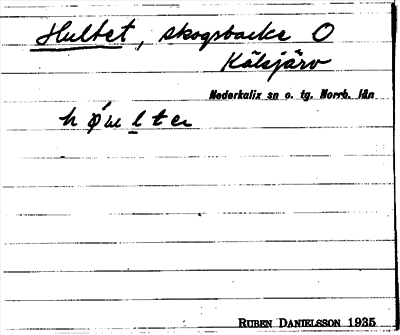 Hultet, skogsbacke O
Kälsjärv
Nederkalix sn o. tg. Norrb. län
RUBEN DANIELSSON 1935